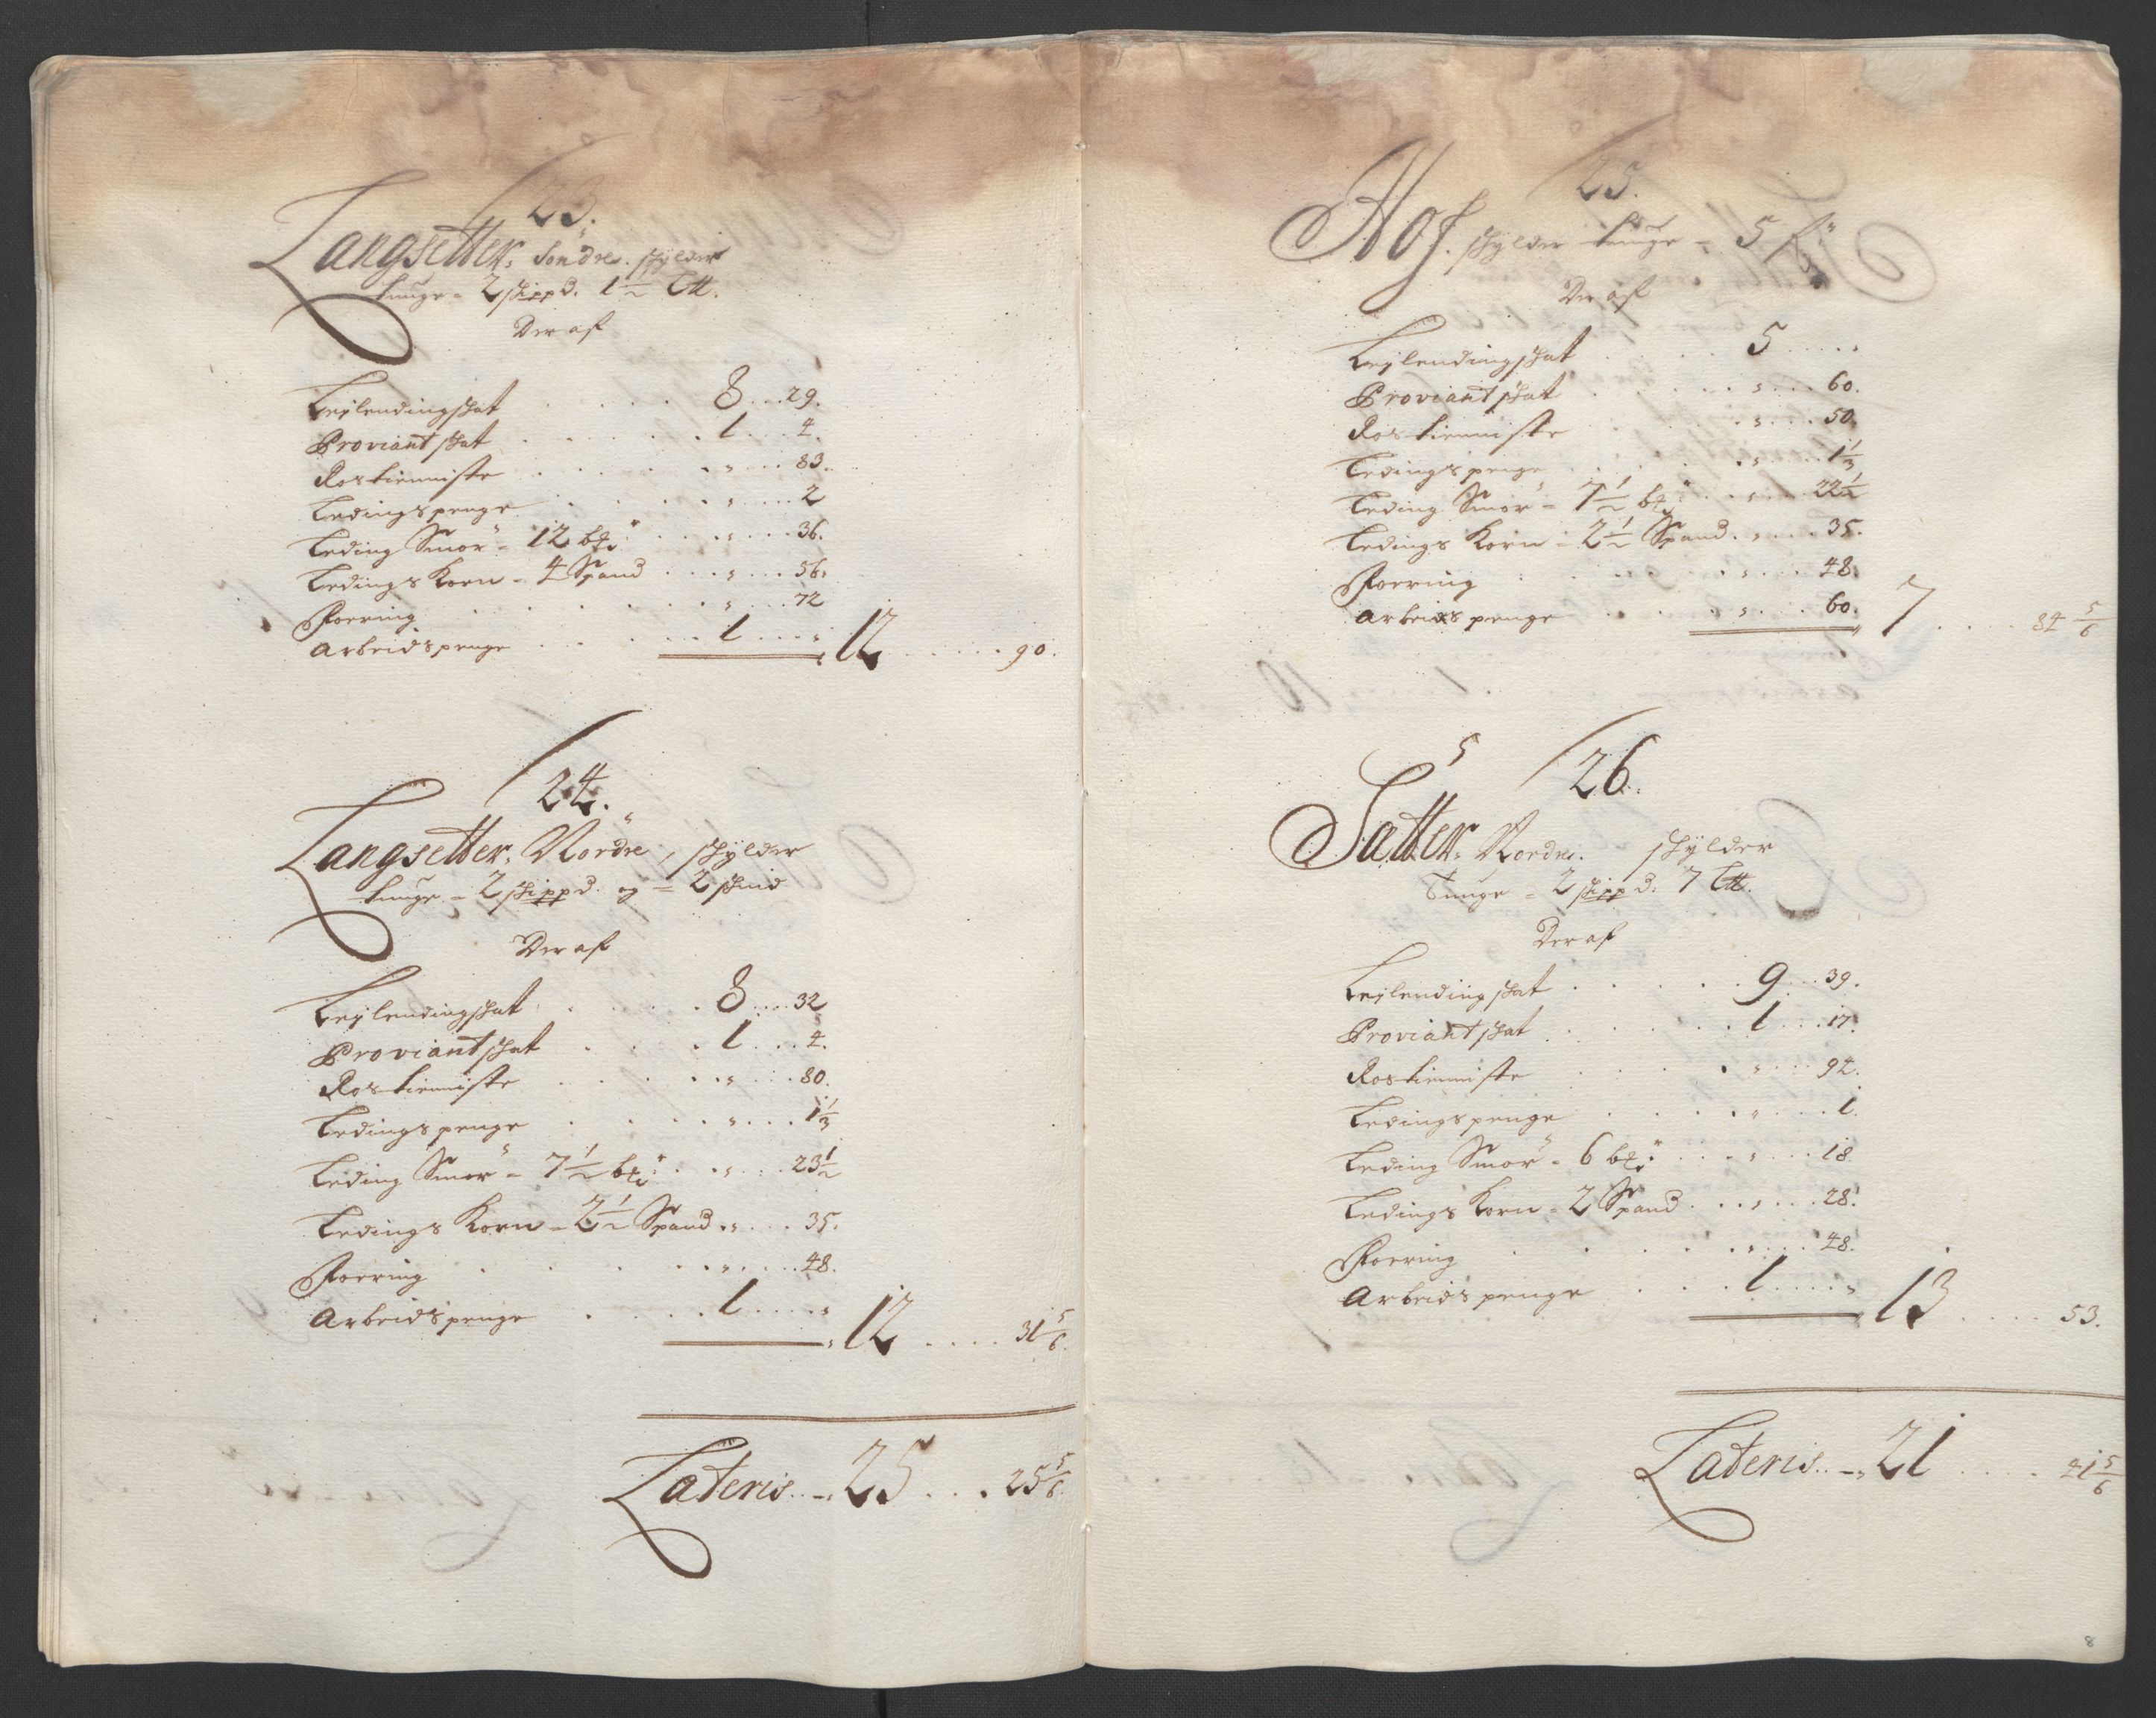 23.
Langsetter, Söndre. skylder
Aarlig tunge - 2 skippd. 1½ L℔.
Der af
Leylendingskat . . . . 8 . . . 29.
Proviantskat . . . . . 1 . . . 4.
Rostienniste . . . . . „ . . . 83.
Ledingspenge . . . . „ . . . 2
Leding Smör - 12 bℳ: . . . „ . . . 36.
Ledings Korn - 4 Spand . . . „ . . . 56.
Foering . . . . . . „ . . . 72
Arbeidspenge . . . . . 1 . . . „ 12 . . . . . 90.
24.
Langsetter, Nordre, skylder
tunge - 2 skippd. og - 2 skind
Der af
Leylendingskat . . . . 8 . . . 32
Proviantskat . . . . 1 . . . 4.
Rostienniste . . . . „ . . . 80.
Ledingspenge . . . . „ . . . 1⅓
Leding Smör - 7½ bℳ: . . „ . . . 23½
Ledings Korn - 2½ Spand . „ . . . 35.
Foering . . . . . . „ . . . 48.
Arbeidspenge . . . . 1 . . . „ 12 . . . . 31⅚.
Lateris - 25 . . . 25⅚.
25.
Hof. skylder tunge - 5
Der af
Leylendingskat . . . . 5 . . . „
Proviantskat . . . . „ . . . 60.
Rostienniste . . . . „ . . . 50.
Ledingspenge . . . . „ . . . 1⅓
Leding Smör - 7½ bℳ: . . „ . . . 22½
Ledings Korn - 2½ Spand . „ . . . 35.
Foering . . . . . . „ . . . 48.
Arbeidspenge . . . . „ . . . 60. 7 . . . . 84⅚
26.
Sætter, Nordre. skylder
Tunge - 2 skippd. 7 L℔.
Der af
Leylendingskat . . . . . 9 . . . 39.
Proviantskat . . . . . 1 . . . 17.
Rostienniste . . . . „ . . . 94.
Ledingspenge . . . . „ . . . 1.
Leding Smör - 6 bℳ: . . . „ . . . 18
Ledings Korn - 2 Spand . . . „ . . . 28.
Foering . . . . . „ . . . 48.
Arbeidspenge . . . . 1 . . . „ 13 . . . . 53.
Lateris - 21 . . . . 41⅚
8